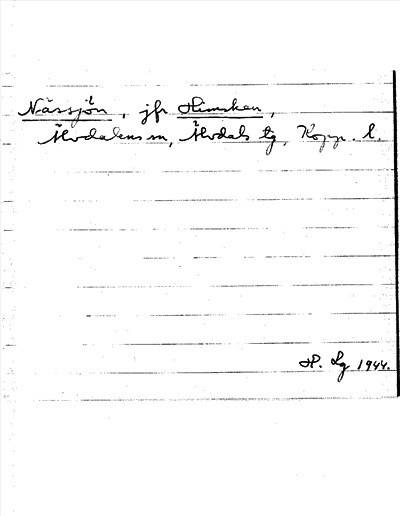 Nässjön, jfr Himskan,
Älvdalens sn, Älvdals tg, Kopp. l.
H. Lg 1944.